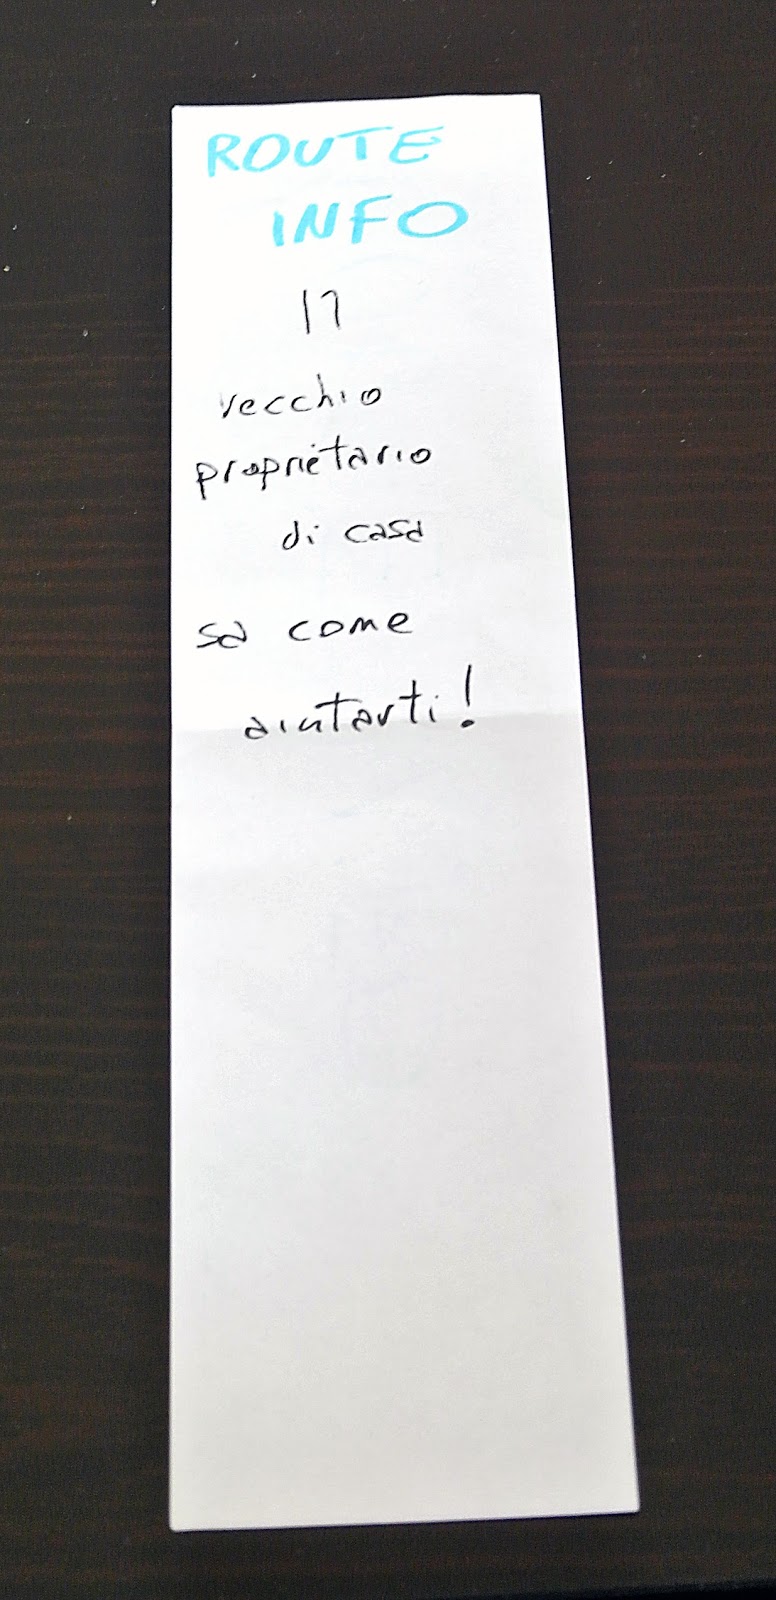 ROUTE
INFO
Il
vecchio
proprietario
di casa
sa come
aiutarti!